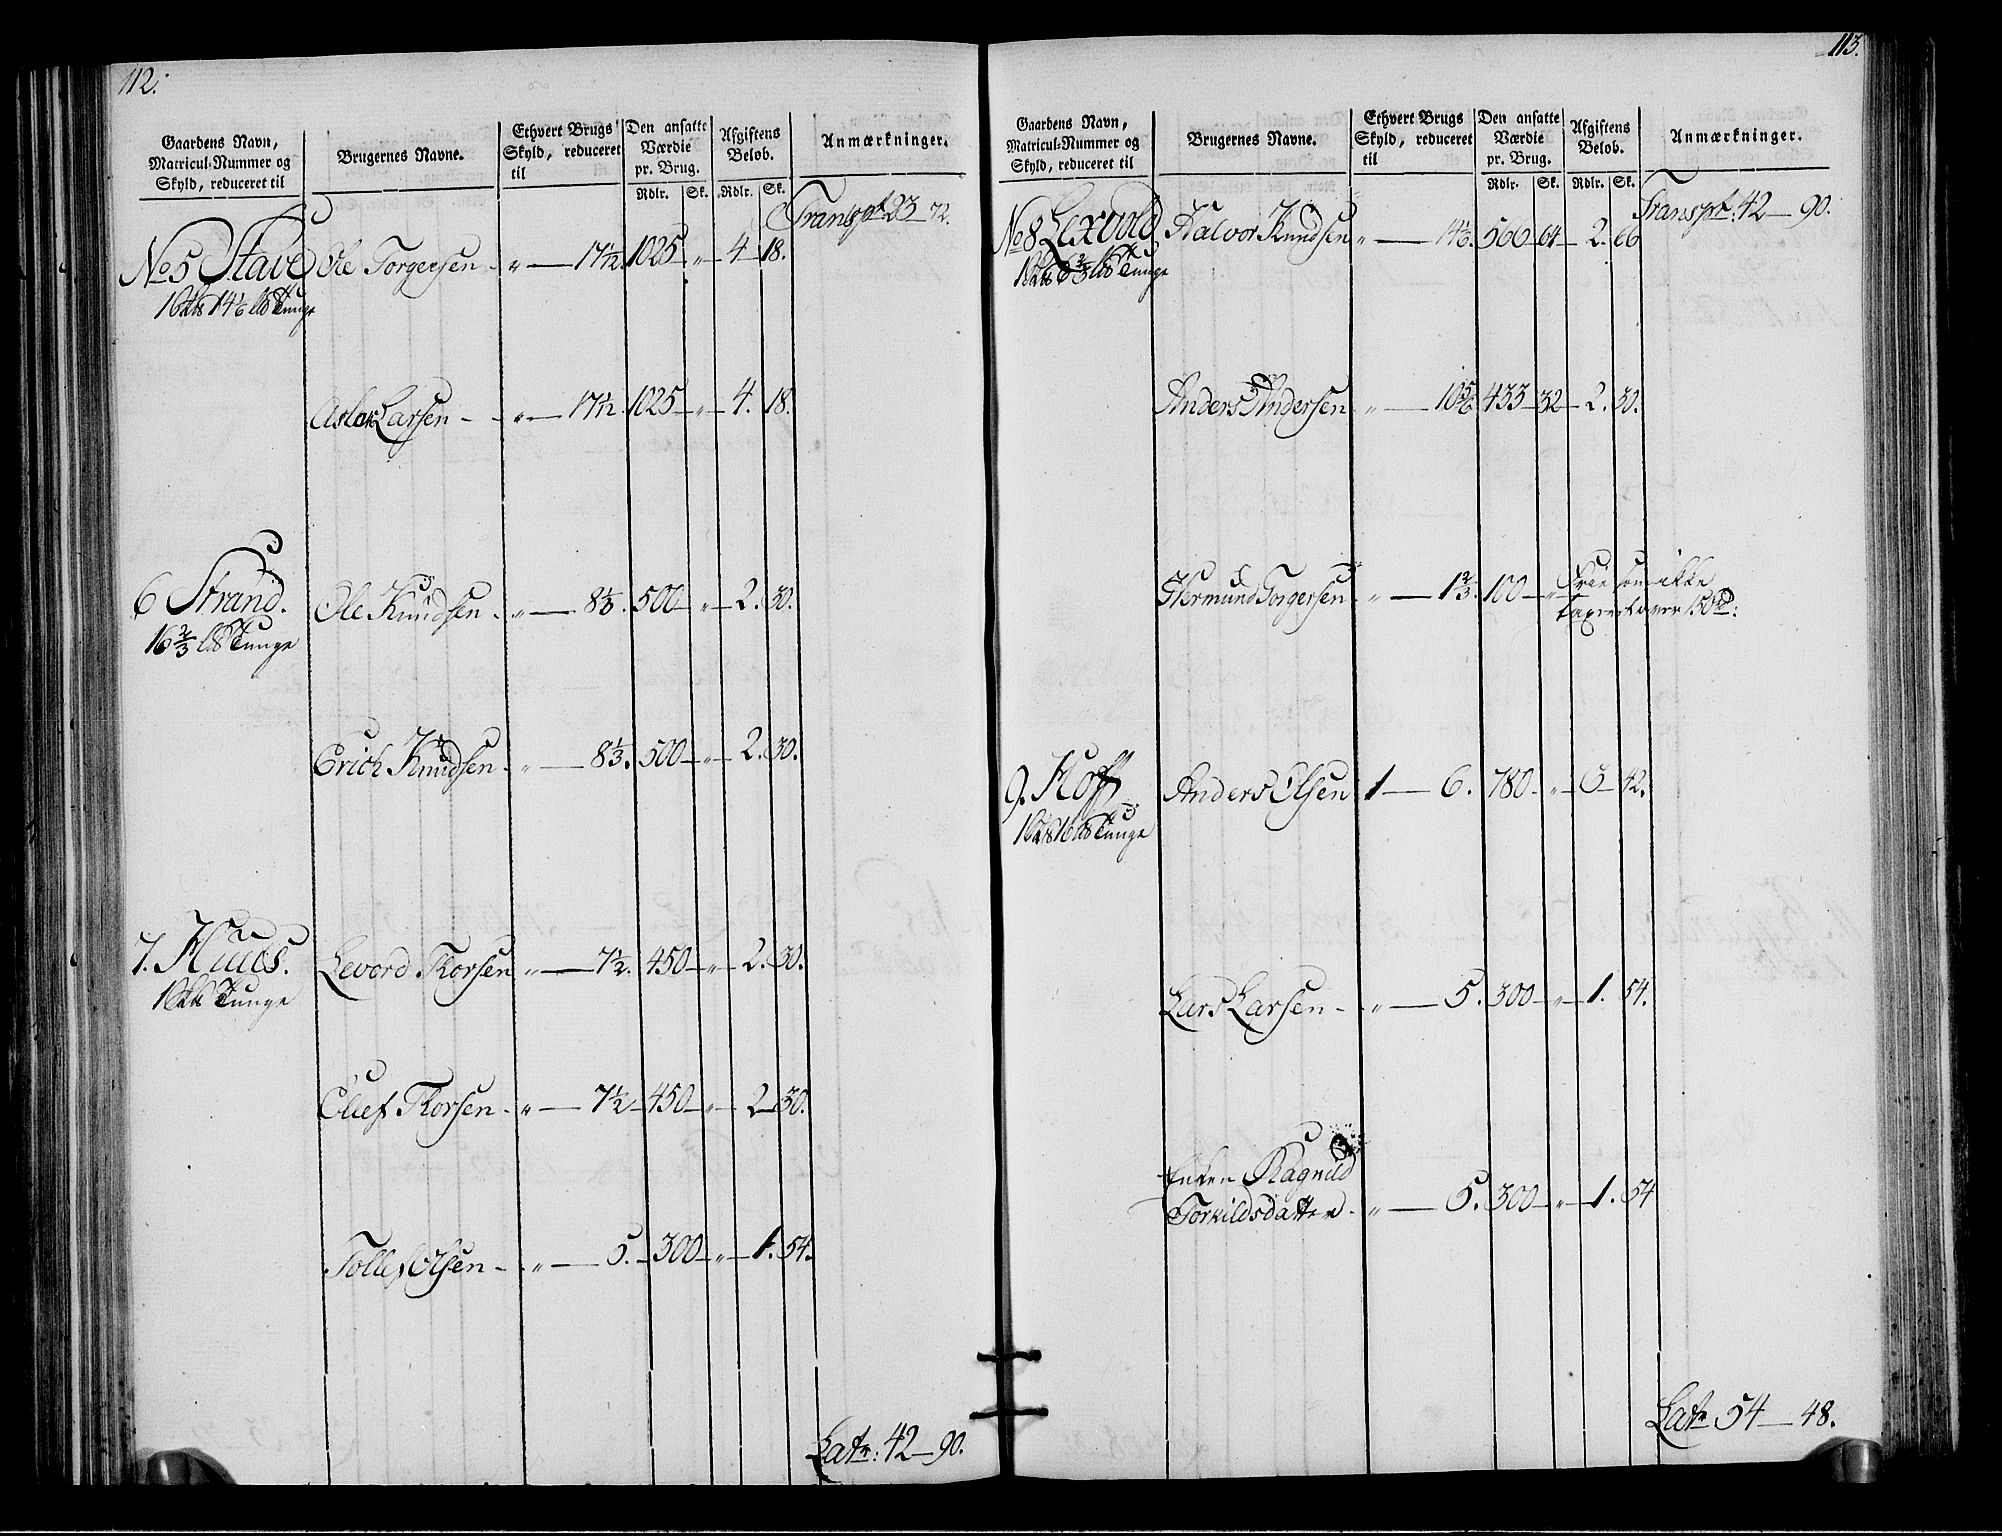 112.
Gaardens Navn, Matricul-Nummer og Skyld, reduceret til
Brugernes Navne.
Ethvert Brugs Skyld, reduceret til
Den ansatte Værdie pr. Brug.
Rdlr. Sk.
Afgiftens Beløb.
Rdlr. Sk.
Anmærkninger.
Transpt. 23 — 72.
No 5 Stave Ole Torgersen - " — 17½. 1025 " 4 18.
Larsen - " — 17½. 1025 " 4. 18.
6 Strand. Ole Knudsen - " — 8⅓. 500 " 2. 30.
16⅔ Tunge
Erich Knudsen - " — 8⅓. 500 " 2. 30.
7. Huus. Levord Thorsen " — 7½. 450 " 2. 30.
Tunge
Oluf Thorsen - " — 7½ 450 " 2 30.
Tollef Olsen - " — 5. 300 " 1. 54.
Latr: 42 — 90.
113.
Gaardens Navn, Matricul-Nummer og Skyld, reduceret til
Brugernes Navne.
Ethvert Brugs Skyld, reduceret til
Den ansatte Værdie pr. Brug.
Rdlr. Sk.
Afgiftens Beløb.
Rdlr. Sk.
Anmærkninger.
Transpt: 42 — 90.
No 8 Lexvold Halvor Knudsen " — 14⅙. 566 64 2. 66
Tunge
Anders Andersen " — 10⅚. 433 32 2. 30.
Hermund Torgersen " — 1⅔. 100 " Frie som ikke
taxert over 150
9. Hoff Anders Olsen 1 — 6. 780 " 3 42.
Tunge
Lars Larsen - " — 5. 300 " 1. 54.
Enken Ragnild
Torkildsdatter - " — 5. 300 " 1. 54
Latr 54 — 48.